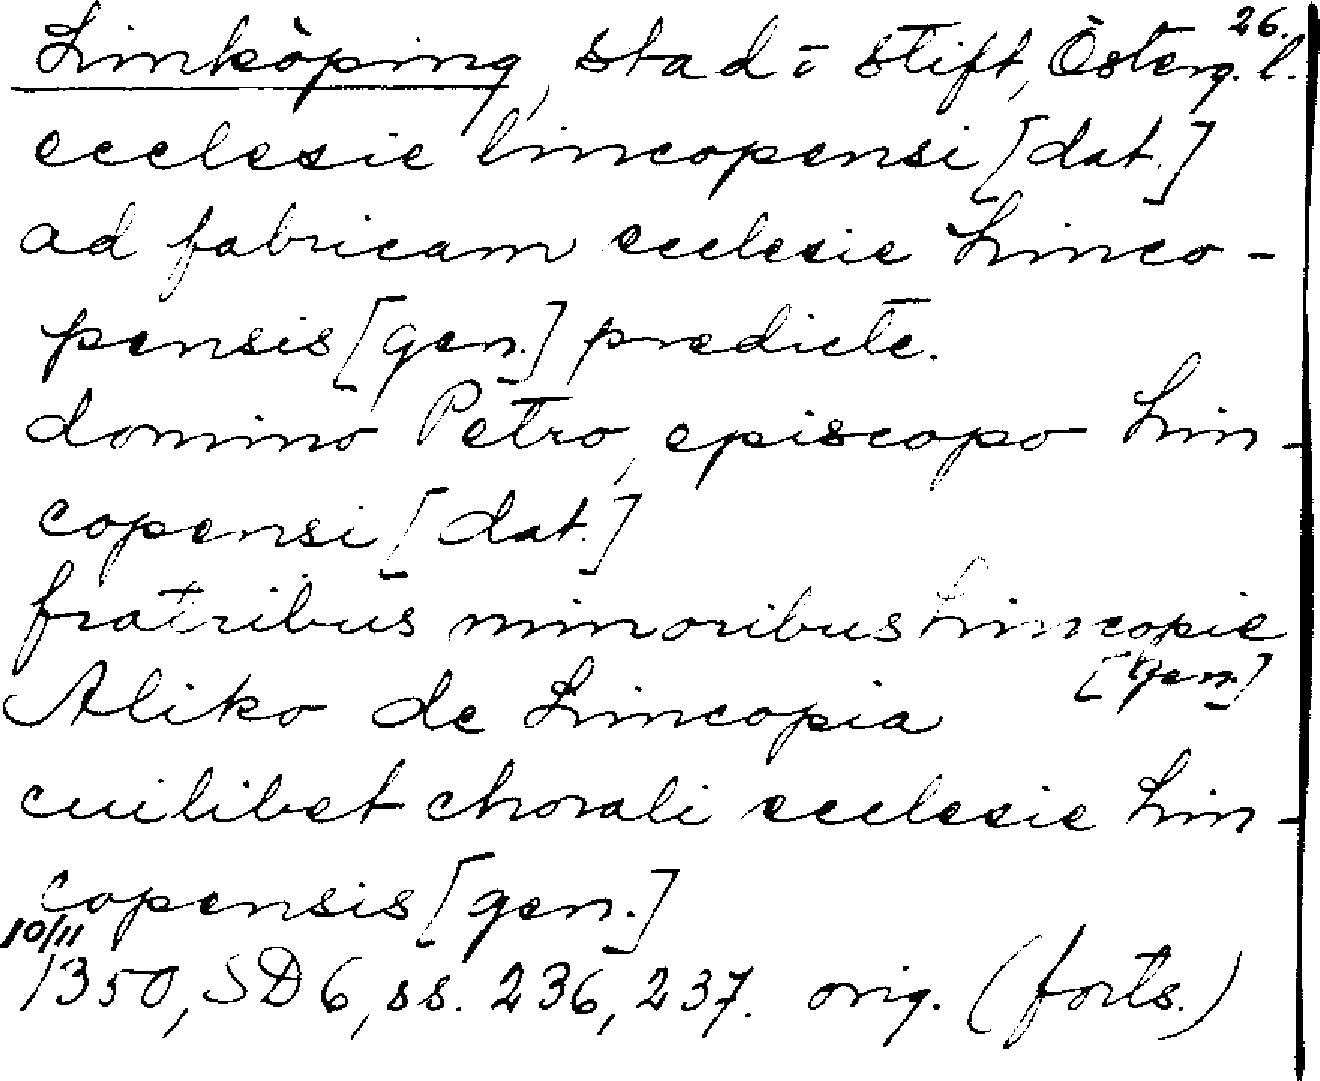 26.
Linköping, stad o stift, Österg. l.
ecclesie lincopensi [dat.]
ad fabricam ecclesie Linco-
pensis [gen.] predicte.
domino Petro, episcopo Lin-
copensi [dat.]
fratribus minoribus Lincopie
[gen.]
Aliko de Lincopia
cuilibet chorali ecclesie Lin-
copensis [gen.]
10/11
1350, SD 6, ss. 236, 237. orig. (forts.)